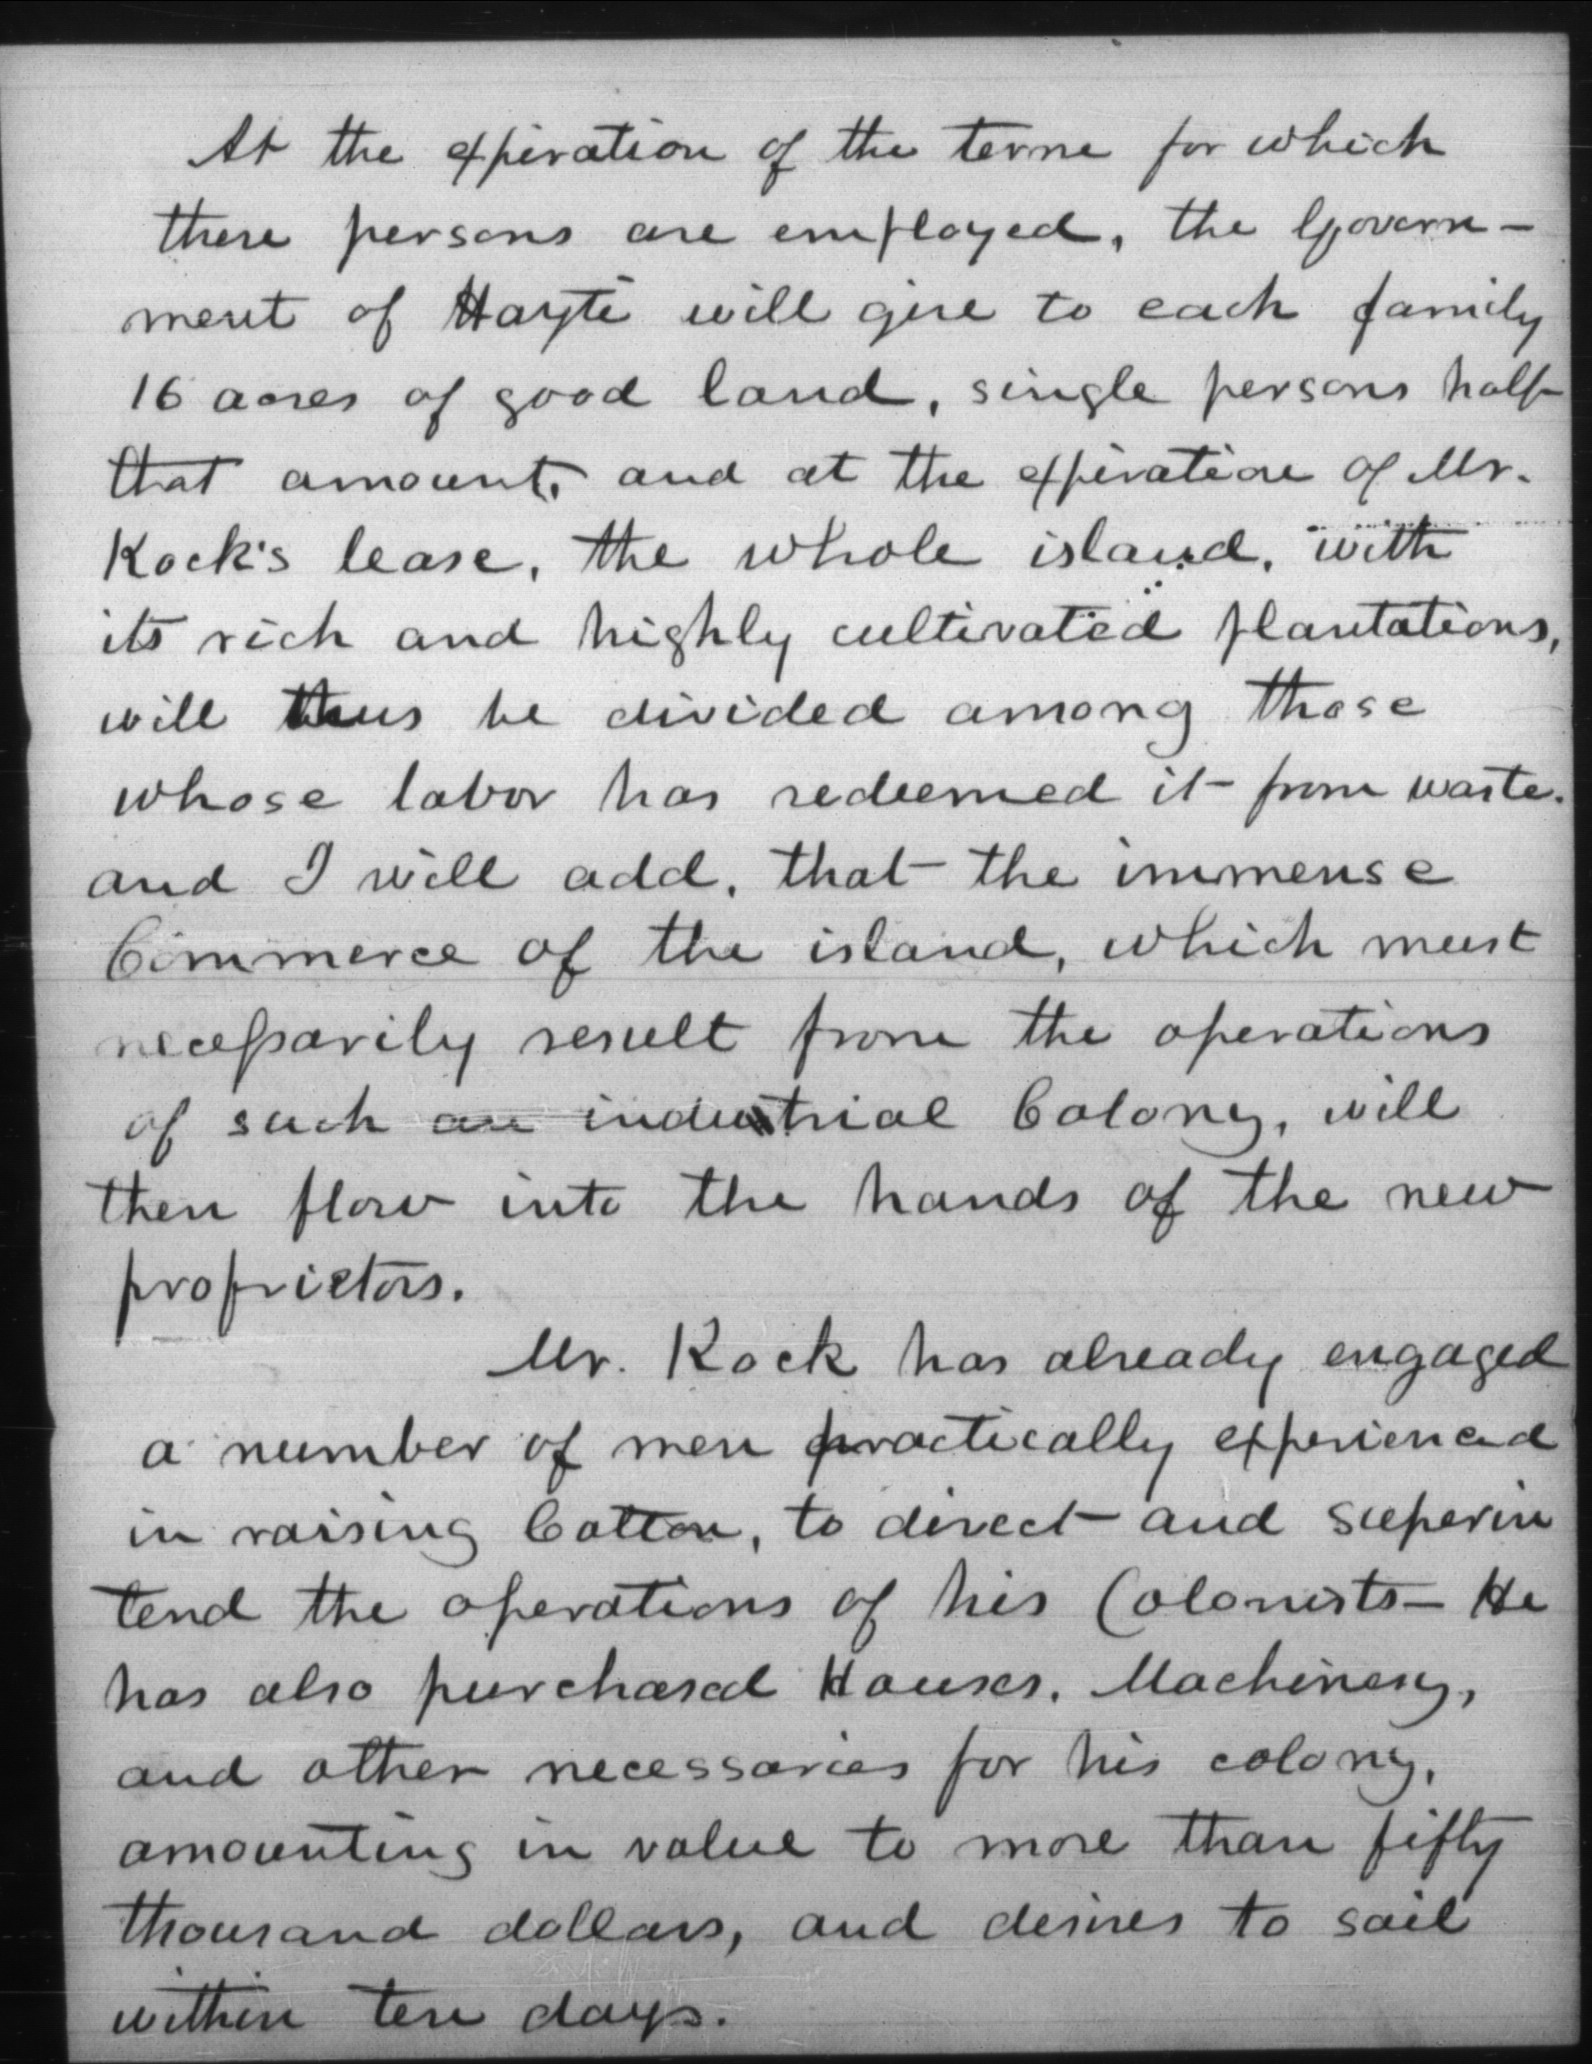 At the expiration of the term for which
these persons are employed, the Govern-
ment of Hayti will give to each family
16 acres of good land, single persons half
that amount, and at the expiration of Mr.
Kock's lease, the whole island, with
its rich and highly cultivated plantations,
will thus be divided among those
whose labor has redeemed it from waste.
and I will add, that the immense
Commerce of the island, which must
necessarily result from the operations
of such an industrial Colony, will
then flow into the hands of the new
proprietors.
Mr. Kock has already engaged
a number of men practically experienced
in raising Cotton, to direct and superin
tend the operations of his Colonists- He
has also purchased Houses, Machinery,
and other necessaries for his colony,
amounting in value to more than fifty
thousand dollars, and desires to sail
within ten days.